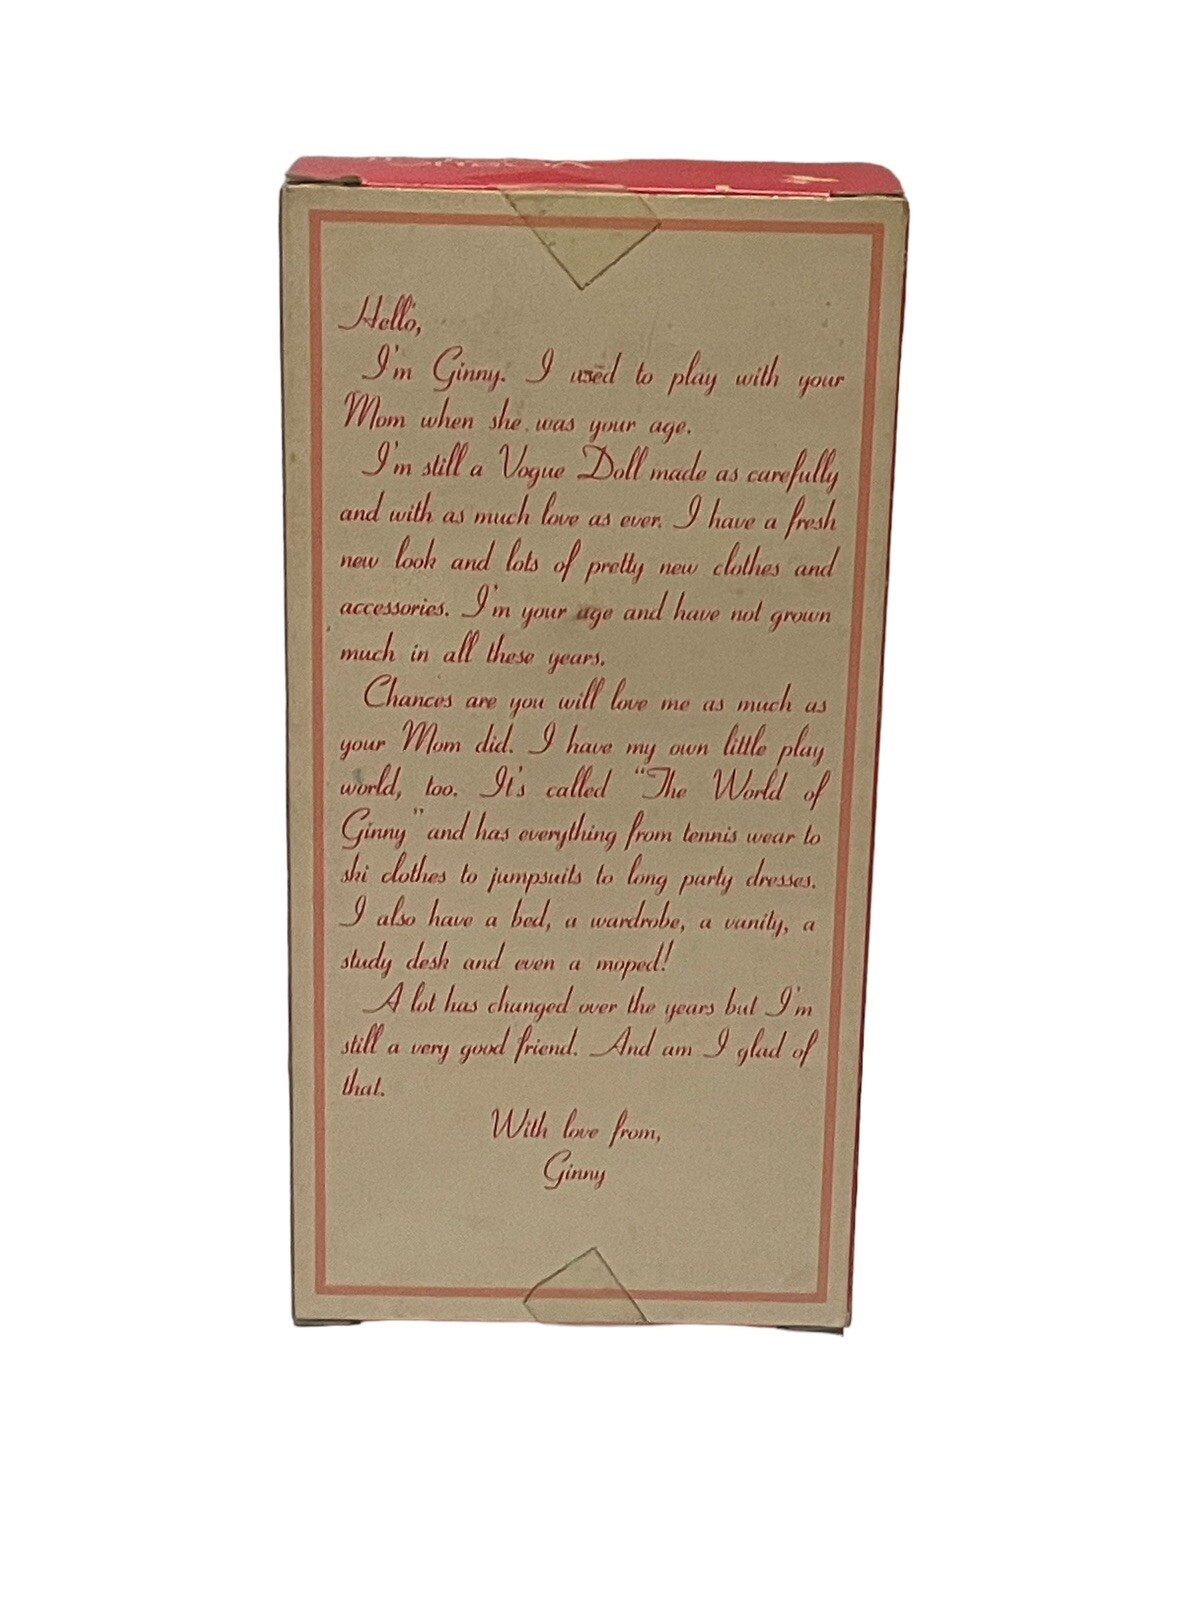 Hello,
I'm Ginny. I used to play with your
Mom when she was your age.
I'm still a Vogue Doll made as carefully
and with as much love as ever. I have a fresh
new look and lots of pretty new clothes and
accessories. I'm your age and have not grown
much in all these years.
Chances are you will love me as much as
your Mom did. I have my own little play
world, too. It's called "The World of
Ginny" and has everything from tennis wear to
ski clothes to jumpsuits to long party dresses.
I also have a bed, a wardrobe, a vanity, a
study desk and even a moped!
A lot has changed over the years but I'm
still a very good friend. And am I glad of
that.
With love from,
Ginny